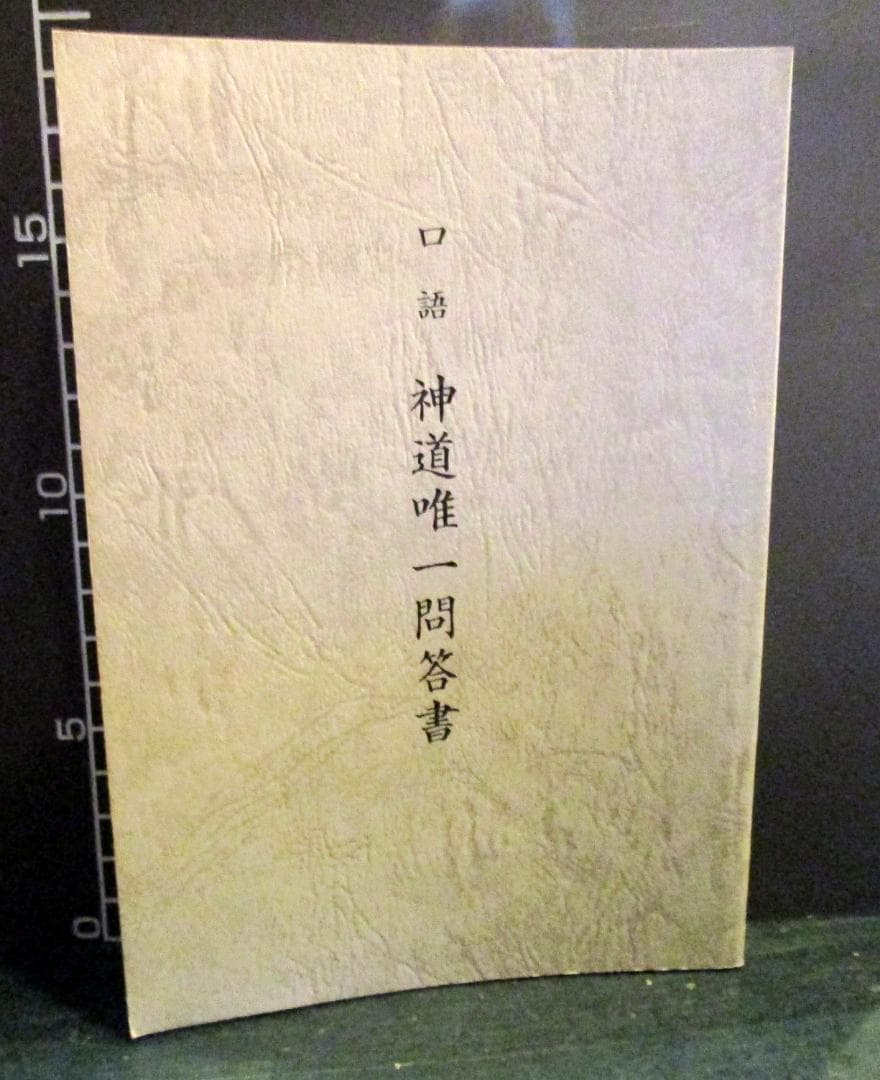 口語 神道唯一問答書
15
10
5
0